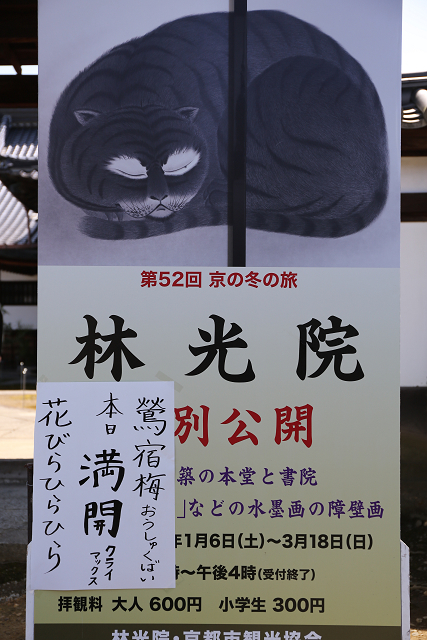 第52回 京の冬の旅
林光院
別公開
築の本堂と書院
」などの水墨画の障壁画
年1月6日(土)~3月18日(日)
~午後4時(受付終了)
拝観料 大人 600円 小学生 300円
林光院・京都市観光協会
鶯宿梅おうしゅくばい
本日満開クライマックス
花びらひらひら